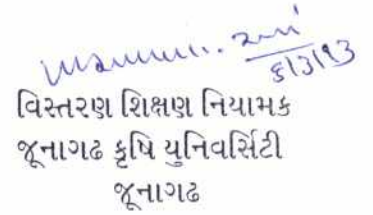 ૬/૩/૧૩
વિસ્તરણ શિક્ષણ નિયામક
જૂનાગઢ કૃષિ યુનિવર્સિટી
જૂનાગઢ